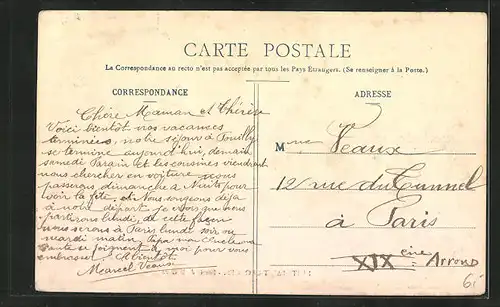 CARTE POSTALE
La Correspondance au recto n'est pas acceptée par tous les Pays Étrangers. (Se renseigner à la Poste.)
CORRESPONDANCE
Chère Maman et Thérèse
Voici bientôt vos vacances
terminées, notre séjour à Pouilly
se termine aujourd'hui, demain
samedi Parain et les cousines viendront
nous chercher en voiture nous
passerons dimanche a Nuits pour
voir la fête, et nous songeons déjà
à notre départ je crois que nous
partirons lundi, de cette façon
nous serons à Paris lundi soir ou
mardi matin, Papa mon Oncle ma
tante se joignent à moi pour vous
embrasser. A bientôt
Marcel Veaux
ADRESSE
Mme Veaux
12 rue du Tunnel
à Paris
XIX eme Arrond
6f